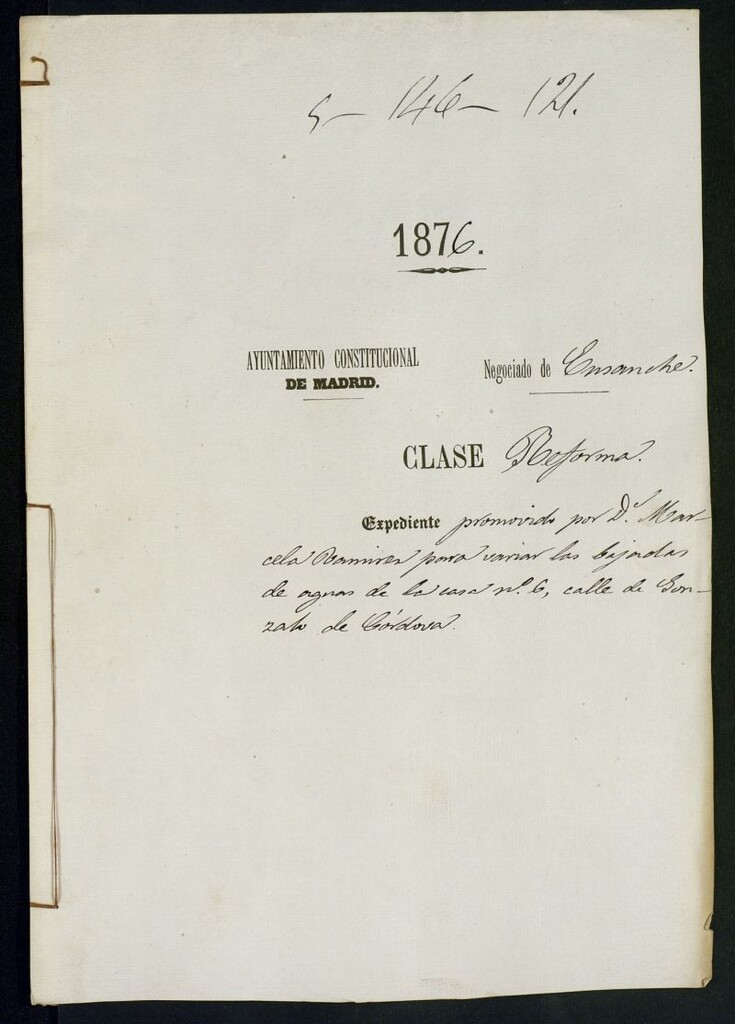 5 - 146 - 121.
1876.
AYUNTAMIENTO CONSTITUCIONAL
DE MADRID.
Negociado de Ensanche.
CLASE Reforma.
Expediente promovido por D.ª Mar-
cela Ramirez para variar las bajadas
de aguas de la casa n.º 6, calle de Gon-
zalo de Córdova.